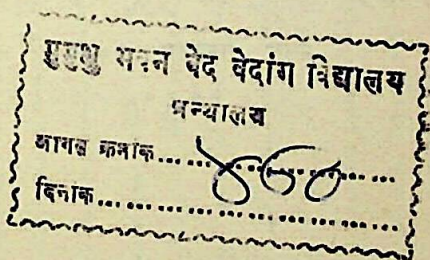 मुमुक्षु भवन वेद वेदांग विद्यालय
ग्रन्थालय
आगत क्रमांक......४६०......
दिनांक..............................